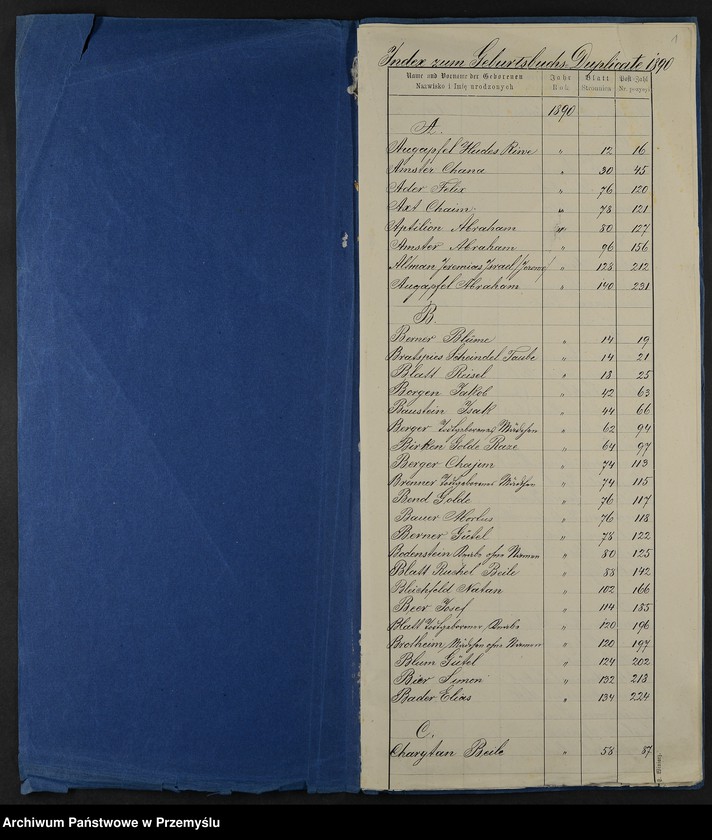 1
Index zum Geburtsbuchs Duplicate 1890
Name und Vorname der Geborenen Jahr Blatt Post-Zahl
Nazwisko i Imię urodzonych Rok Stronnica Nr. pozycyi
1890
A.
Augapfel Hudes Riwe " 12 16
Amster Chana " 30 45
Ader Felix " 76 120
Axt Chaim " 78 121
Aptilion Abraham " 80 127
Amster Abraham " 96 156
Altman Jeremias Israel / " 128 212
Augapfel Abraham " 140 231
B.
Berner Blüme " 14 19
Bratspies Scheindel Taube " 14 21
Blatt Reisel " 18 25
Bergen Jakob " 42 63
Baustein Isak " 44 66
Berger todtgeborenes Mädchen " 62 94
Birken Golde Raze " 64 97
Berger Chajem " 74 113
Brenner todtgeborenes Mädchen " 74 115
Bend Golde " 76 117
Bauer " 76 118
Berner Gütel " 78 122
Bodenstein Knabe ohne Namen " 80 125
Blatt Ruchel Beile " 88 142
Bleichfeld Natan " 102 166
Beer Josef " 114 185
Blatt todtgeborener Knabe " 120 196
Brotheim Mädchen ohne Namen " 120 197
Blum Gütel " 124 202
Bier Simon " 132 218
Bader Elias " 134 224
C.
Charytan Beile " 58 87
Archiwum Państwowe w Przemyślu